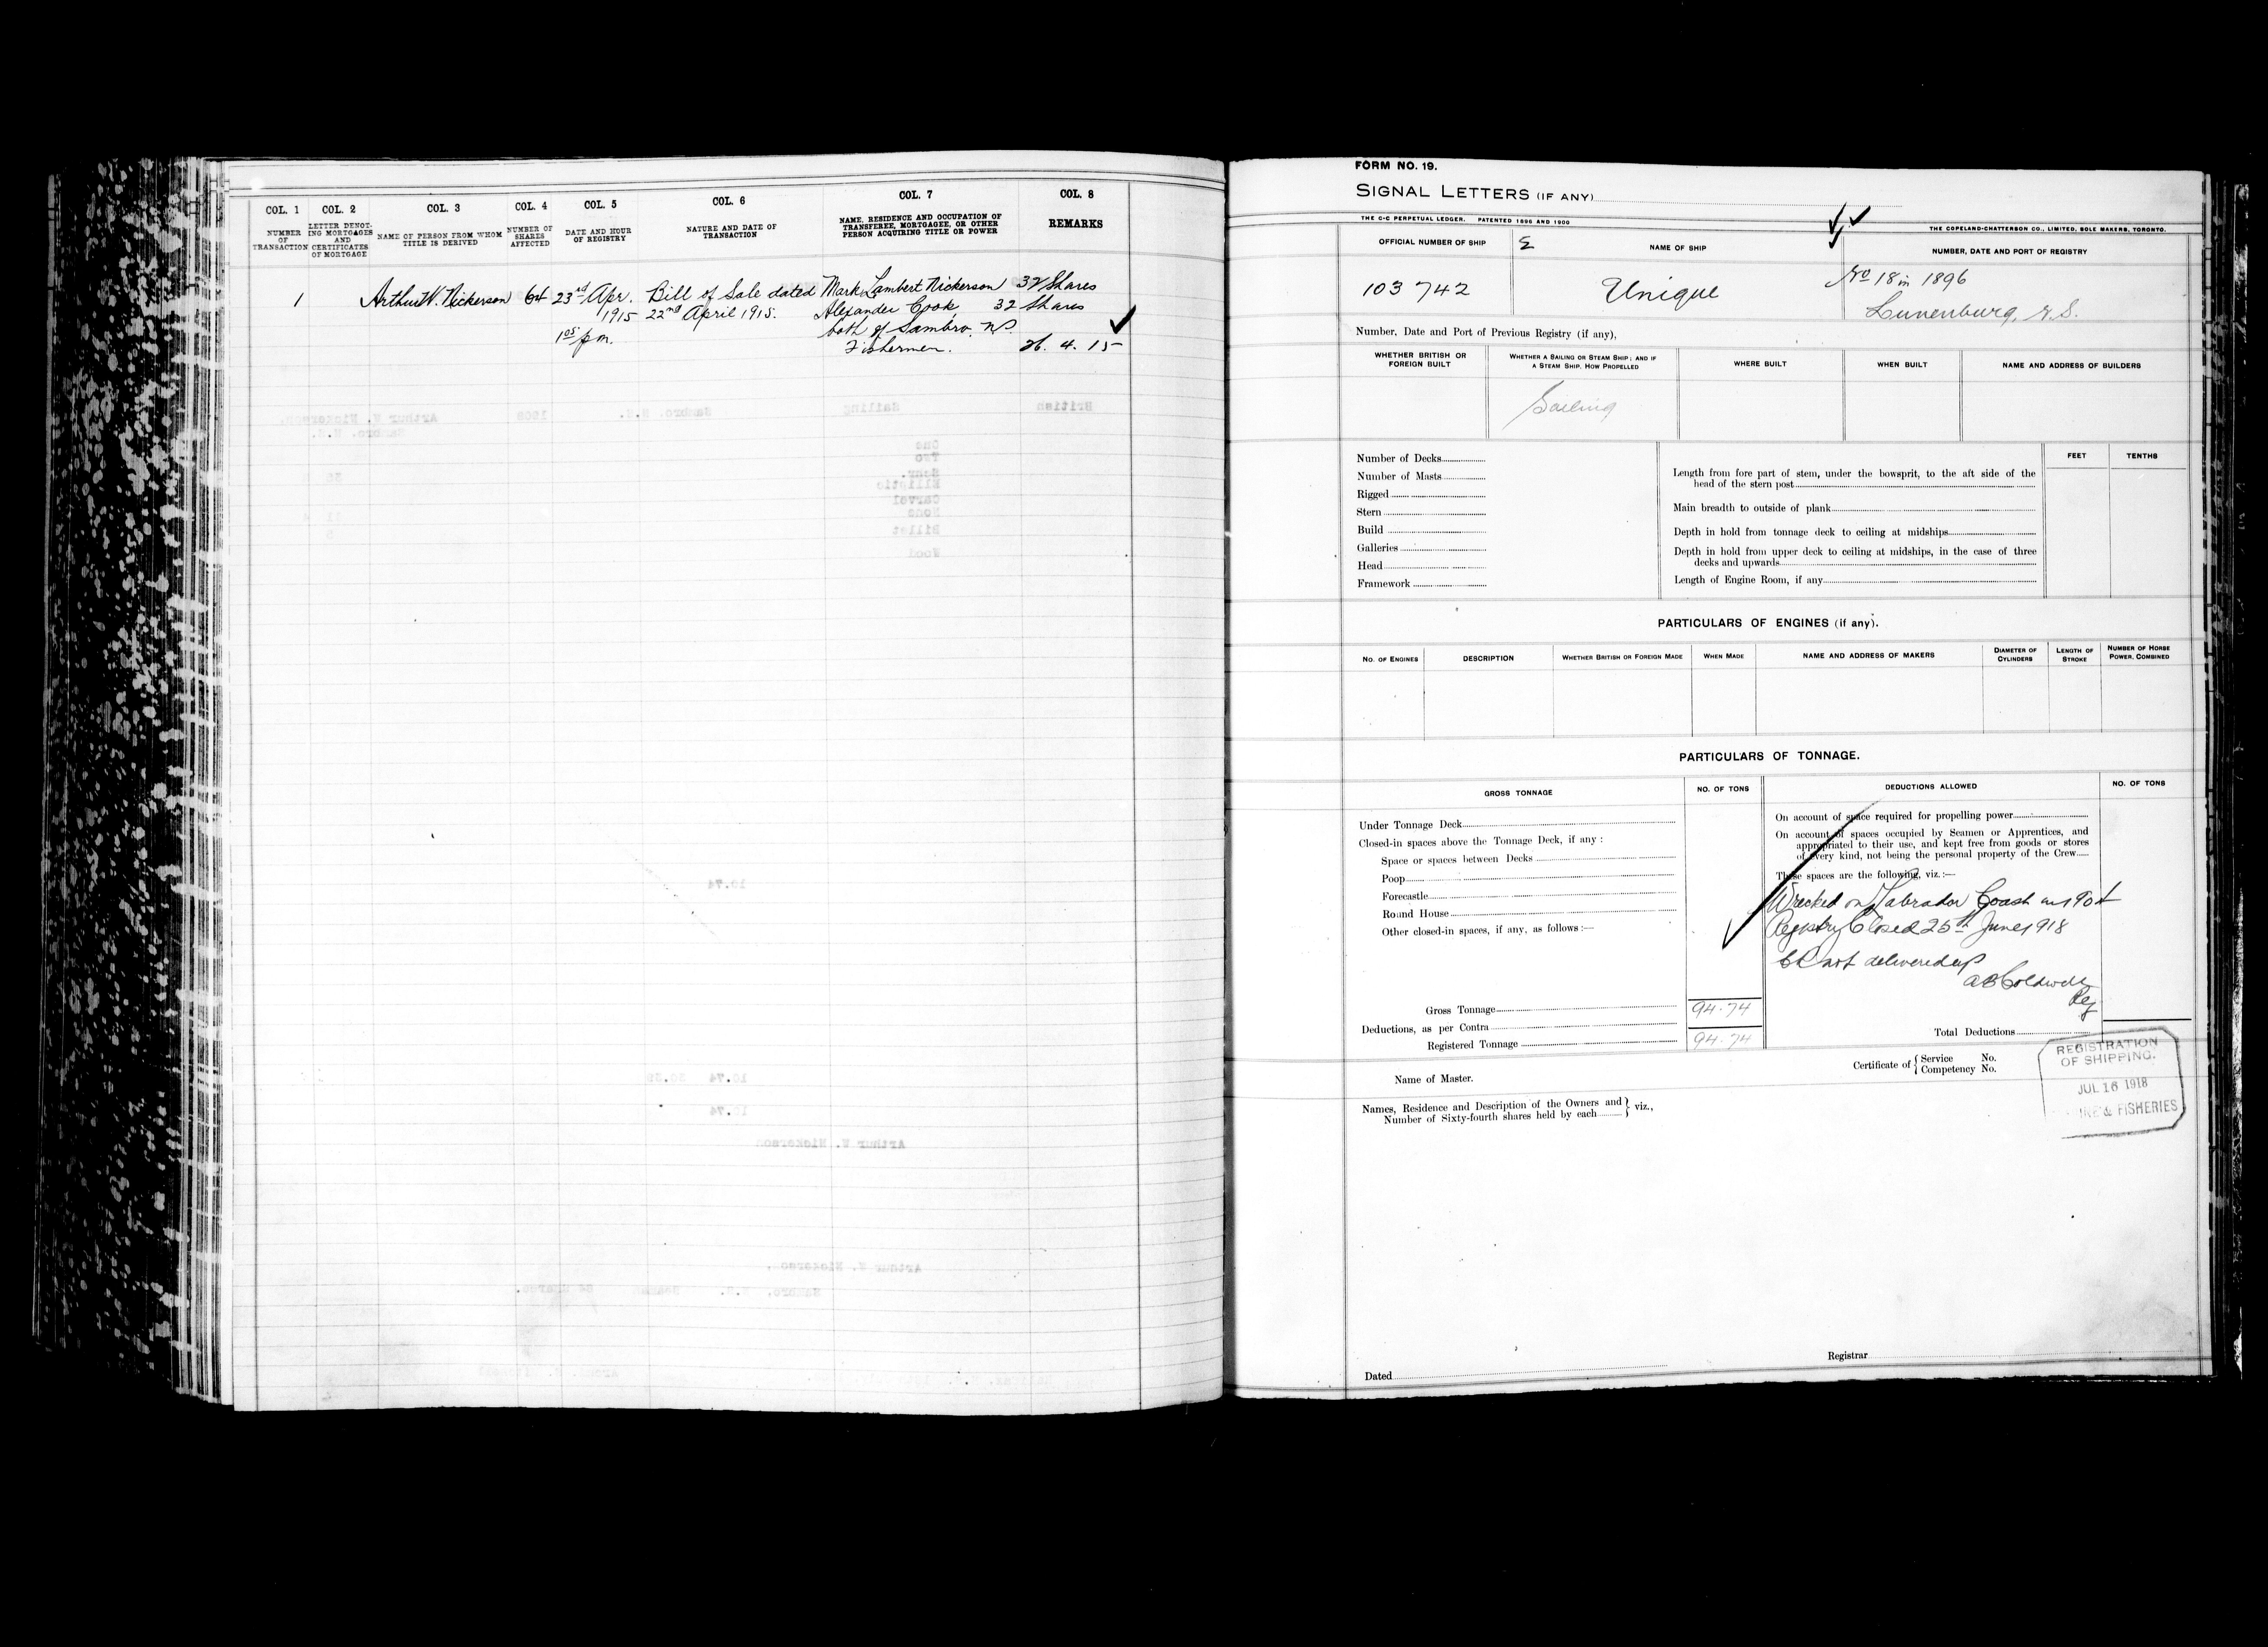 COL. 1
COL. 2
COL. 3
COL. 4
COL. 5
COL. 6
COL. 7
COL. 8
NUMBER OF TRANSACTION
LETTER DENOTING MORTGAGES AND CERTIFICATES OF MORTGAGE
NAME OF PERSON FROM WHOM TITLE IS DERIVED
NUMBER OF SHARES AFFECTED
DATE AND HOUR OF REGISTRY
NATURE AND DATE OF TRANSACTION
NAME, RESIDENCE AND OCCUPATION OF TRANSFEREE, MORTGAGEE, OR OTHER PERSON ACQUIRING TITLE OR POWER
REMARKS
1 Arthur W. Nickerson 64 23rd Apr. Bill of Sale dated Mark Lambert Nickerson 32 Shares
1915 22nd April 1915. Alexander Cook, 32 Shares
both of Sambro, N.S.
1.05 p.m. Fishermen. 26. 4. 15
FORM NO. 19.
SIGNAL LETTERS (IF ANY)
THE C-C PERPETUAL LEDGER. PATENTED 1896 AND 1900
THE COPELAND-CHATTERSON CO., LIMITED, SOLE MAKERS, TORONTO.
OFFICIAL NUMBER OF SHIP
NAME OF SHIP
NUMBER, DATE AND PORT OF REGISTRY
103742
Unique
No 18 in 1896
Lunenburg, N.S.
Number, Date and Port of Previous Registry (if any),
WHETHER BRITISH OR FOREIGN BUILT
WHETHER A SAILING OR STEAM SHIP; AND IF A STEAM SHIP, HOW PROPELLED
WHERE BUILT
WHEN BUILT
NAME AND ADDRESS OF BUILDERS
Sailing
Number of Decks
Number of Masts
Rigged
Stern
Build
Galleries
Head
Framework
FEET
TENTHS
Length from fore part of stem, under the bowsprit, to the aft side of the
head of the stern post
Main breadth to outside of plank
Depth in hold from tonnage deck to ceiling at midships
Depth in hold from upper deck to ceiling at midships, in the case of three
decks and upwards
Length of Engine Room, if any
PARTICULARS OF ENGINES (if any).
NO. OF ENGINES
DESCRIPTION
WHETHER BRITISH OR FOREIGN MADE
WHEN MADE
NAME AND ADDRESS OF MAKERS
DIAMETER OF CYLINDERS
LENGTH OF STROKE
NUMBER OF HORSE POWER, COMBINED
PARTICULARS OF TONNAGE.
GROSS TONNAGE
NO. OF TONS
DEDUCTIONS ALLOWED
NO. OF TONS
Under Tonnage Deck
Closed-in spaces above the Tonnage Deck, if any :
Space or spaces between Decks
Poop
Forecastle
Round House
Other closed-in spaces, if any, as follows :—
Gross Tonnage 94.74
Deductions, as per Contra
Registered Tonnage 94.74
On account of space required for propelling power
On account of spaces occupied by Seamen or Apprentices, and
appropriated to their use, and kept free from goods or stores
of every kind, not being the personal property of the Crew
These spaces are the following, viz. :—
Wrecked on Labrador Coast in 1904
Registry Closed 25th June 1918
CR not delivered up
Reg
Total Deductions
Name of Master.
Certificate of { Service No.
Competency No.
REGISTRATION
OF SHIPPING.
JUL 16 1918
INE & FISHERIES
Names, Residence and Description of the Owners and
Number of Sixty-fourth shares held by each } viz.,
Dated
Registrar